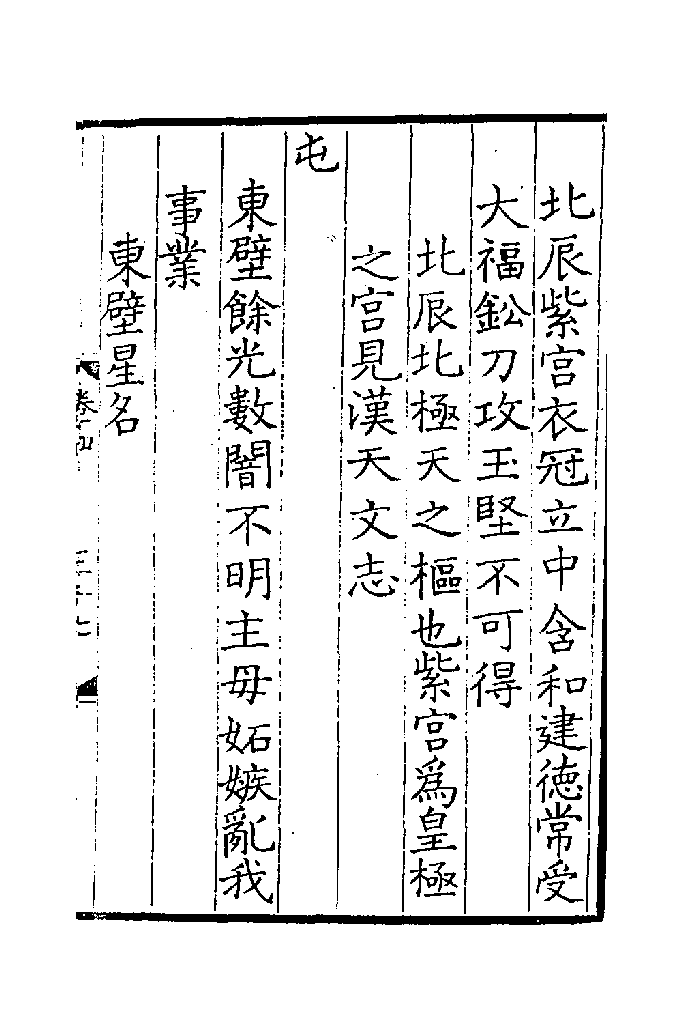 北辰紫宫衣冠立中含和建德常受
大福鈆刀攻玉堅不可得
北辰北極天之樞也紫宫爲皇極
之宫見漢天文志
屯
東壁餘光數闇不明主毋妬嫉亂我
事業
東壁星名